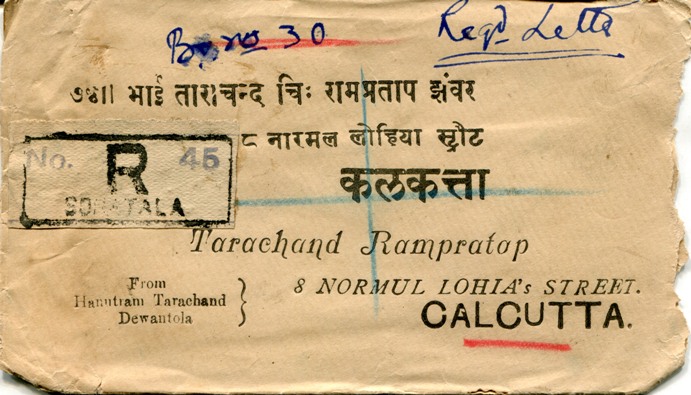 B. no 30
Regd Letter
७४॥ भाई ताराचन्द चिः रामप्रताप झंवर
८ नारमल लोहिया स्ट्रीट
No. R 45
SONATALA
कलकत्ता
Tarachand Rampratap
From
Hanutram Tarachand
Dewantola
8 NORMUL LOHIA's STREET.
CALCUTTA.